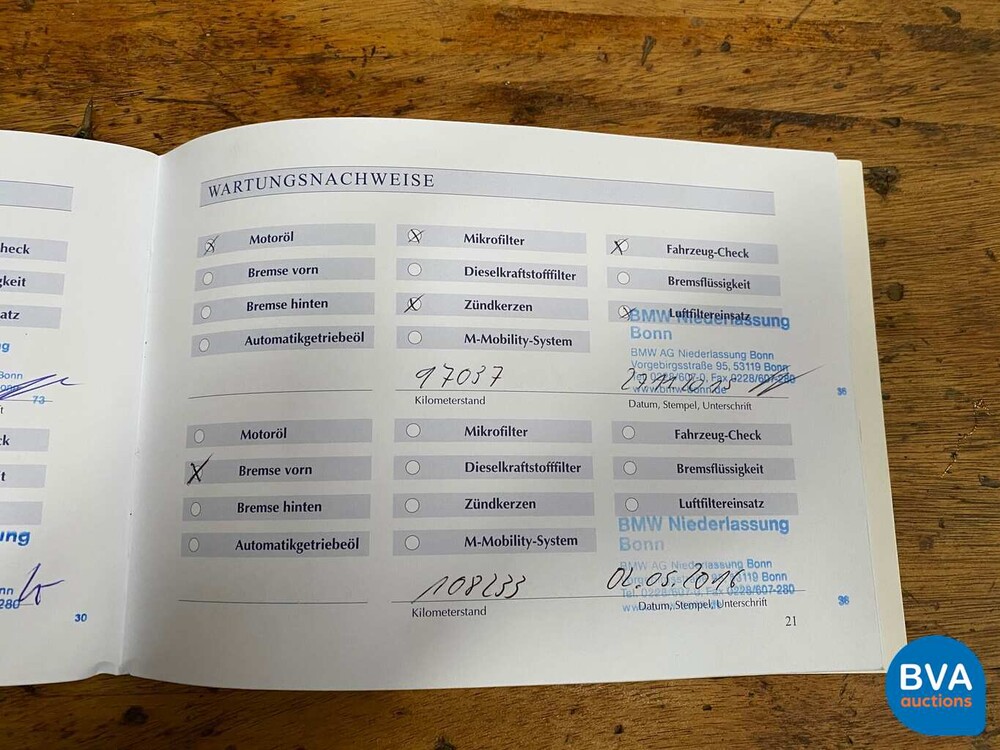 WARTUNGSNACHWEISE
heck
Motoröl
Mikrofilter
Fahrzeug-Check
gkeit
Bremse vorn
Dieselkraftstofffilter
Bremsflüssigkeit
atz
Bremse hinten
Zündkerzen
Luftfiltereinsatz
BMW Niederlassung
Bonn
Automatikgetriebeöl
M-Mobility-System
BMW AG Niederlassung Bonn
Vorgebirgsstraße 95, 53119 Bonn
Tel. 0228/607-0, Fax 0228/607-280
www.bmw-bonn.de
97037
36
73
Kilometerstand
Datum, Stempel, Unterschrift
ck
Motoröl
Mikrofilter
Fahrzeug-Check
t
Bremse vorn
Dieselkraftstofffilter
Bremsflüssigkeit
Bremse hinten
Zündkerzen
Luftfiltereinsatz
ung
BMW Niederlassung
Bonn
Automatikgetriebeöl
M-Mobility-System
BMW AG Niederlassung Bonn
53119 Bonn
Tel. 0228/607-0, Fax 0228/607-280
108233
02.05.2016
280
36
Kilometerstand
Datum, Stempel, Unterschrift
30
21
BVA
auctions